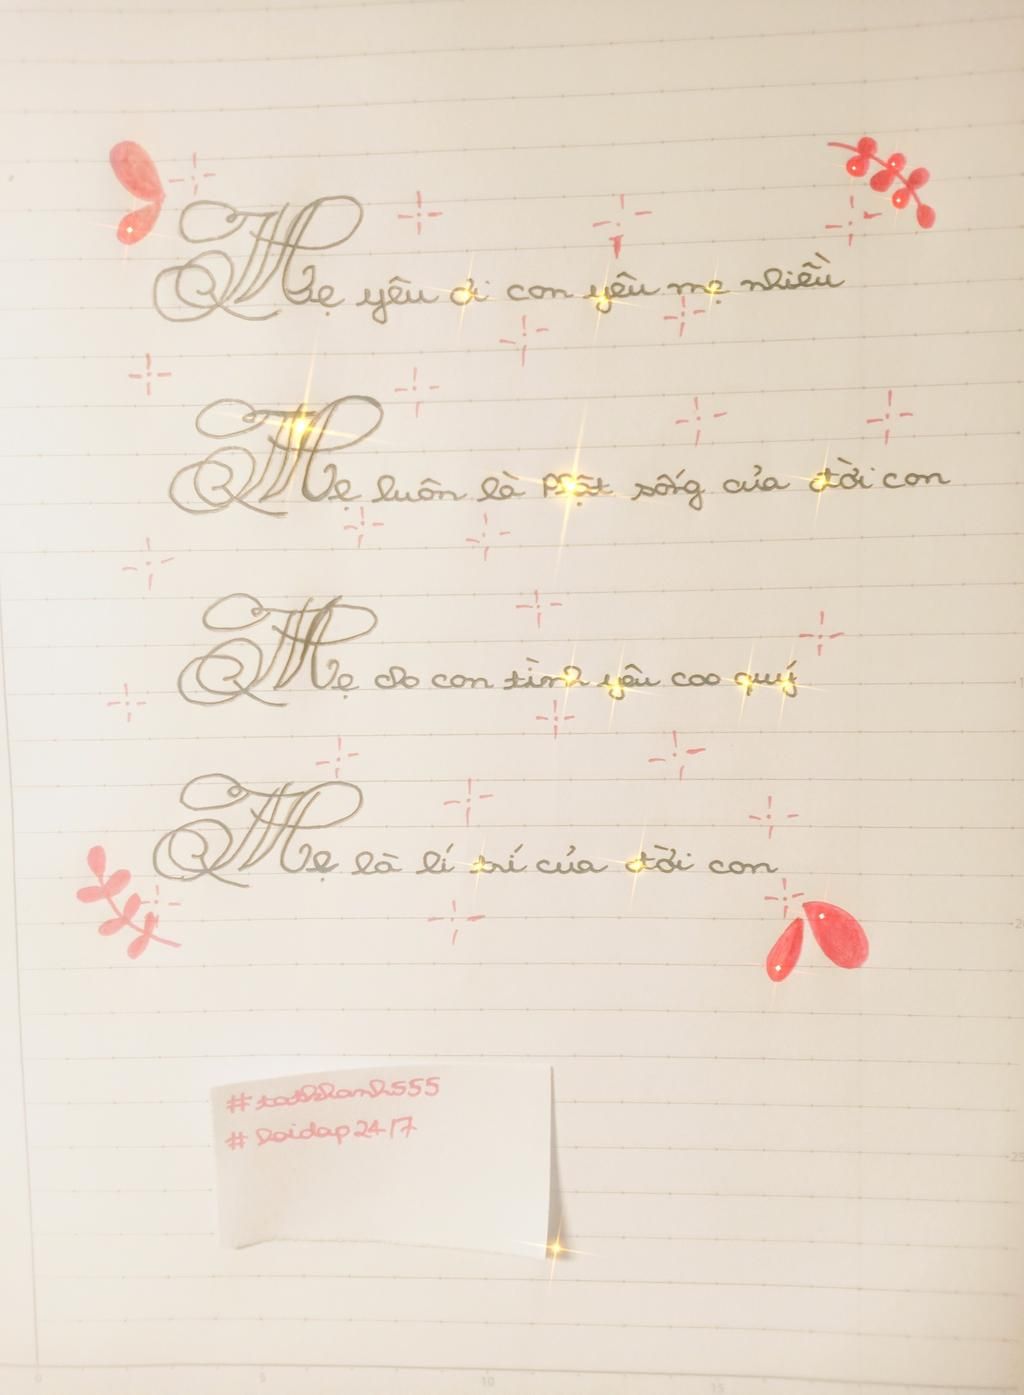 Mẹ yêu ơi con yêu mẹ nhiều
Mẹ luôn là Phật sống của đời con
Mẹ cho con tình yêu cao quý
Mẹ là lí trí của đời con
#hoidap247
20
25
5
10
15